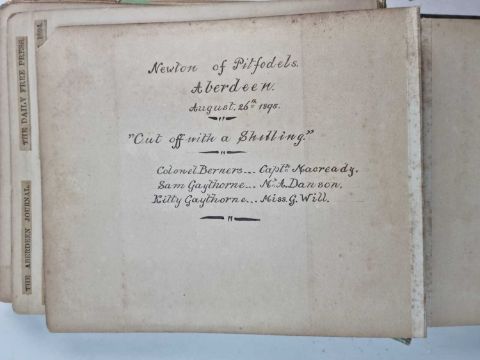 Newton of Pitfodels.
Aberdeen.
August. 26th 1898.
"Cut off with a Shilling."
Colonel Berners... Captn Macready.
Sam Gaythorne... Mr A. Danson.
Kitty Gaythorne... Miss. G. Will.
THE ABERDEEN JOURNAL.
THE DAILY FREE PRESS